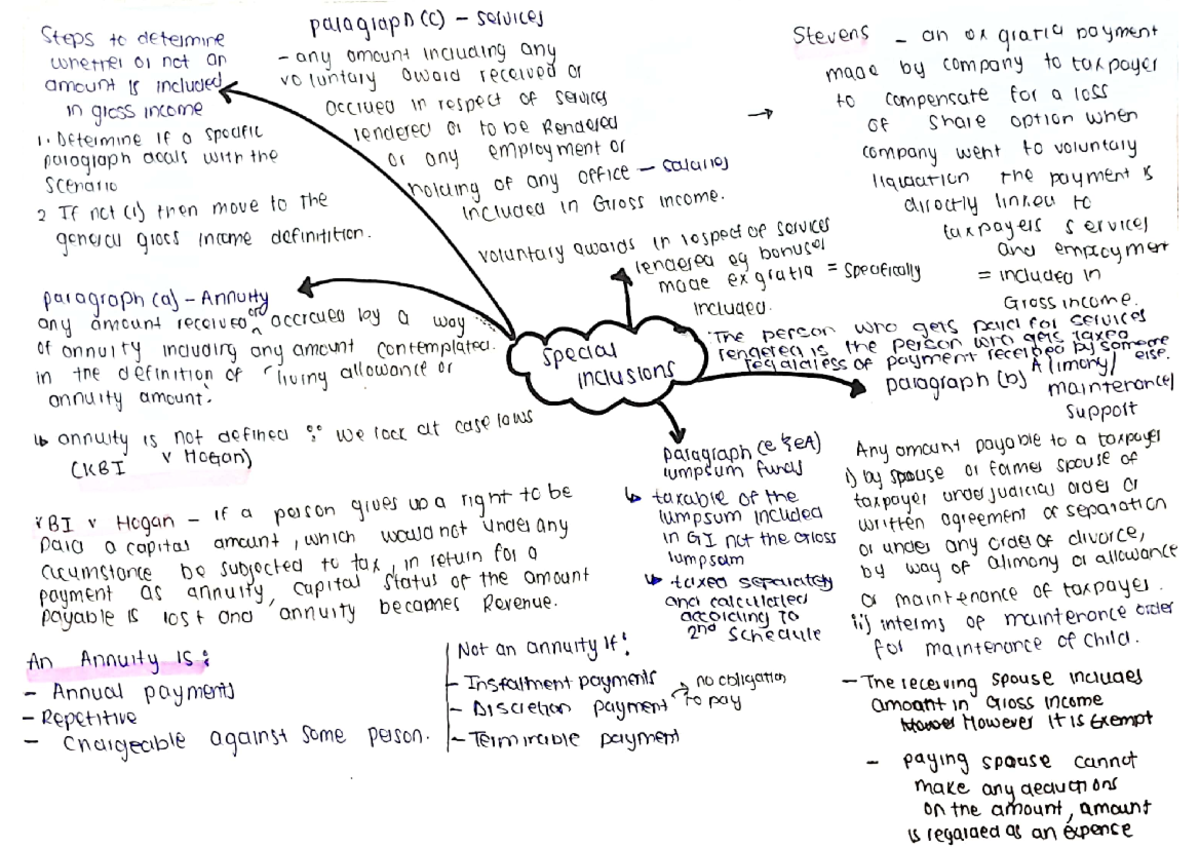 Steps to determine
whether or not an
amount is included
in gross income
1. Determine if a specific
paragraph deals with the
scenario
2 If not (1) then move to the
general gross income definitition.
paragraph (c) - services
- any amount including any
voluntary award received or
accrued in respect of services
rendered or to be Rendered
or any employment or
holding of any office - salaries
included in Gross Income.
voluntary awards in respect of services
rendered eg bonuses
made ex gratia = specifically
included.
Stevens - an ex gratia payment
made by company to taxpayer
to compensate for a loss
of share option when
company went to voluntary
liquidation the payment is
directly linked to
taxpayers services
and employment
= included in
Gross income.
The person who gets paid for services
rendered is the person who gets taxed
regardless of payment received by someone
else.
special
inclusions
paragraph (a) - Annuity
any amount received or accrued by a way
of annuity including any amount contemplated
in the definition of "living allowance or
annuity amount'
↳ annuity is not defined ∵ we look at case laws
(KBI v Hogan)
KBI v Hogan - if a person gives up a right to be
paid a capital amount, which would not under any
circumstance be subjected to tax, in return for a
payment as annuity, capital status of the amount
payable is lost and annuity becomes Revenue.
An Annuity is:
- Annual payments
- Repetitive
- Chargeable against some person.
Not an annuity if:
- Instalment payments
- Discretion payment → no obligation
to pay
- Terminable payment
paragraph (e & eA)
lumpsum funds
↳ taxable of the
lumpsum included
in GI not the Gross
lumpsum
↳ taxed separately
and calculated
according to
2nd Schedule
paragraph (b) Alimony/
maintenance/
Support
Any amount payable to a taxpayer
i) by spouse or former spouse of
taxpayer under judicial order or
written agreement of separation
or under any order of divorce,
by way of alimony or allowance
or maintenance of taxpayer.
ii) interms of maintenance order
for maintenance of child.
- The receiving spouse includes
amount in Gross Income
However It is Exempt
- paying spouse cannot
make any deductions
on the amount, amount
is regarded as an expence